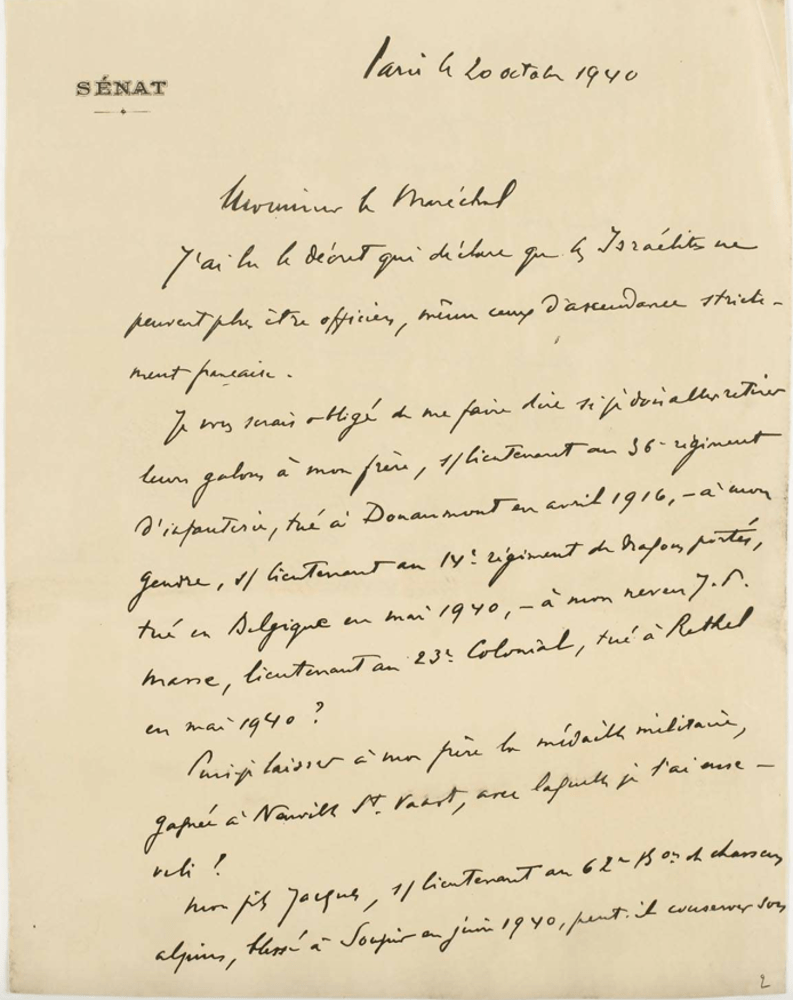 SÉNAT
Paris le 20 octobre 1940
Monsieur le Maréchal
J'ai lu le décret qui déclare que les Israélites ne
peuvent plus être officiers, même ceux d'ascendance stricte-
ment française.
Je vous serais obligé de me faire dire si je dois aller retirer
leurs galons à mon frère, s/lieutenant au 36e régiment
d'infanterie, tué à Douaumont en avril 1916, – à mon
gendre, s/lieutenant au 14e régiment de dragons portés,
tué en Belgique en mai 1940, – à mon neveu J.P.
Masse, lieutenant au 23e Colonial, tué à Rethel
en mai 1940 ?
Puis-je laisser à mon frère la médaille militaire,
gagnée à Neuville St. Vaast, avec laquelle je l'ai ense-
veli ?
Mon fils Jacques, s/lieutenant au 62e Bon de chasseurs
alpins, blessé à Soupir en juin 1940, peut-il conserver son
2